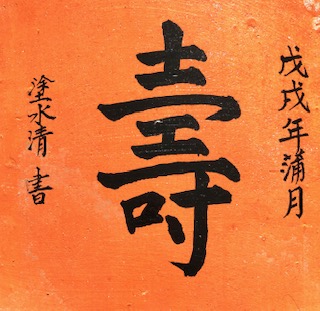 戊戌年蒲月
壽
塗水清 書